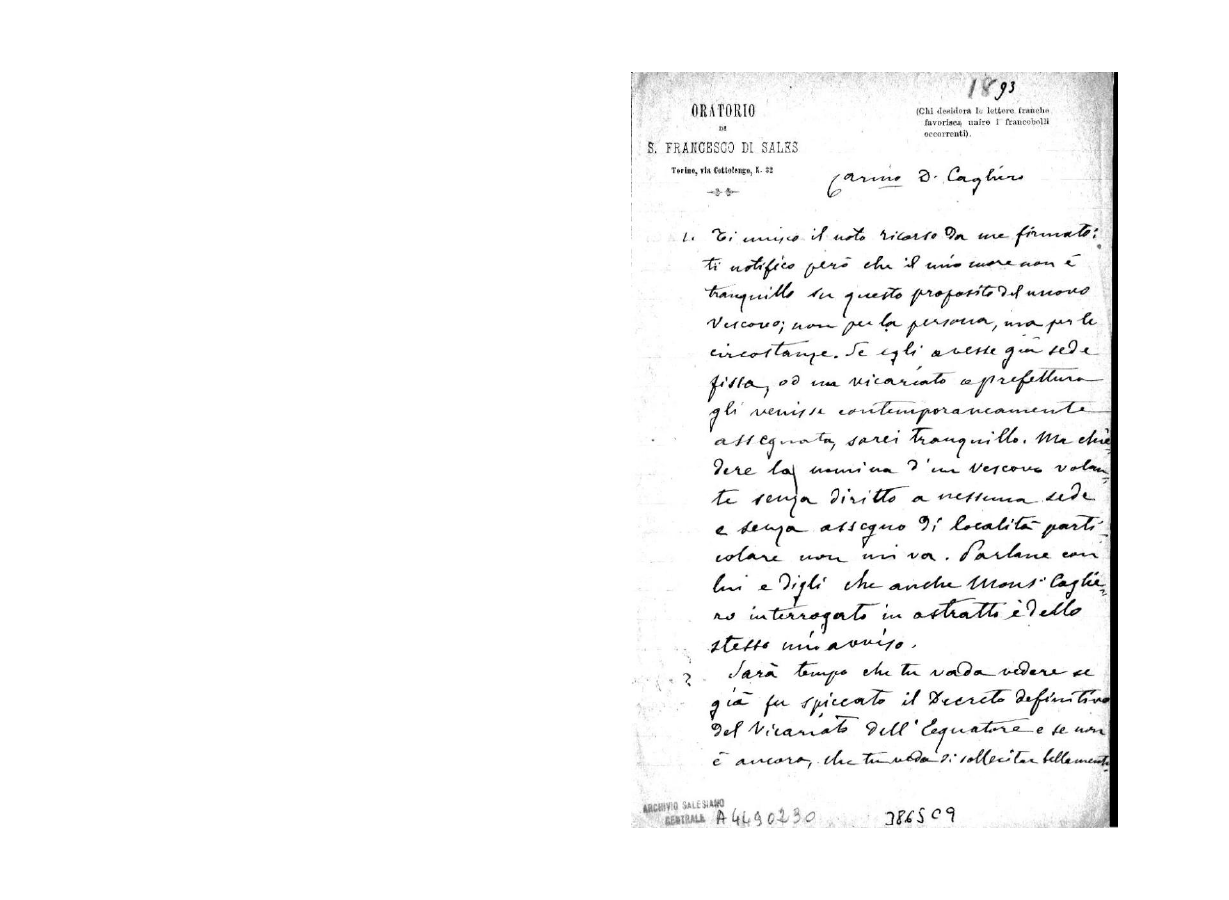 1893
ORATORIO
DI
S. FRANCESCO DI SALES
Torino, via Cottolengo, N. 32
(Chi desidera le lettere franche
favorisca unire i francobolli
occorrenti).
Car.mo D. Cagliero
1. Ti unisco il noto ricorso da me firmato:
ti notifico però che il mio cuore non è
tranquillo su questo proposito del nuovo
Vescovo; non per la persona, ma per le
circostanze. Se egli avesse già sede
fissa, od un vicariato o prefettura
gli venisse contemporaneamente
assegnata, sarei tranquillo. Ma chie-
dere la nomina d'un Vescovo volan-
te senza diritto a nessuna sede
e senza assegno di località parti-
colare non mi va. Parlane con
lui e digli che anche Mons. Caglie-
ro interrogato in astratto è dello
stesso mio avviso.
2. Sarà tempo che tu vada vedere se
già fu spiccato il Decreto definitivo
del Vicariato dell'Equatore e se non
è ancora, che tu vada sollecitar bellamente
ARCHIVIO SALESIANO
CENTRALE A4490230
3865C9